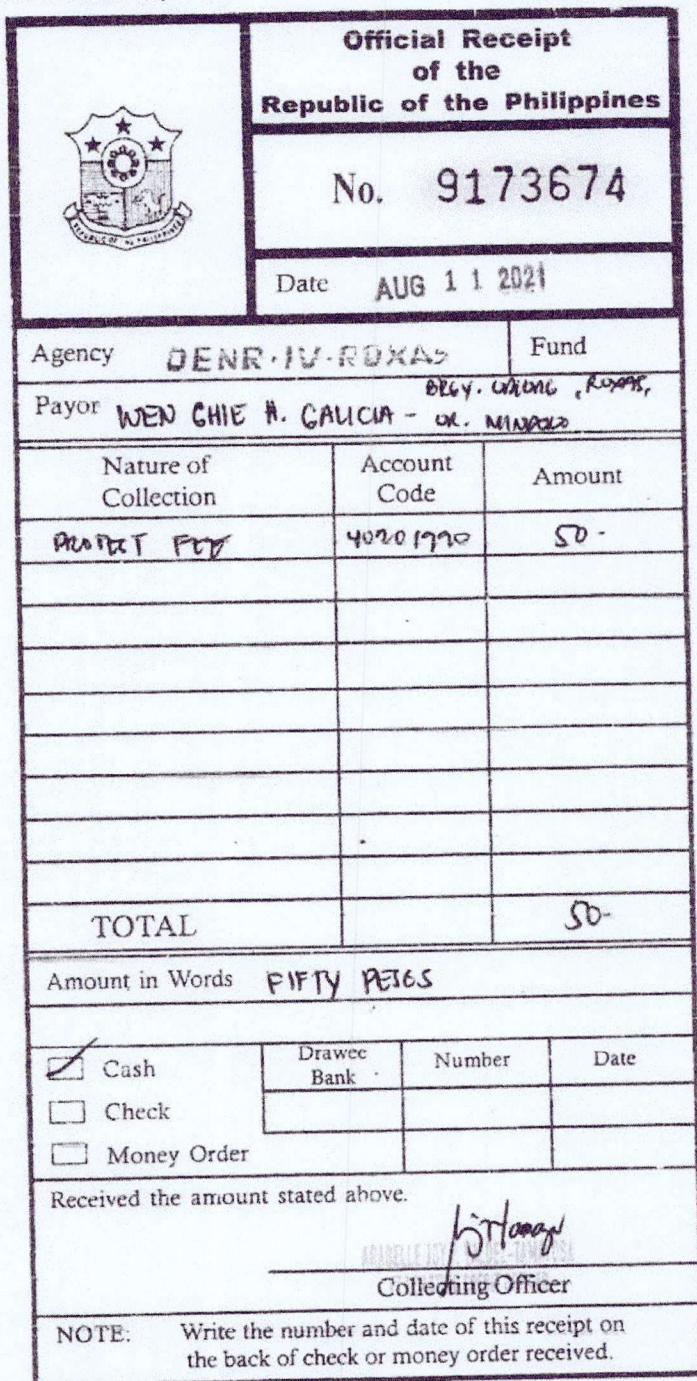 Official Receipt
of the
Republic of the Philippines
No. 9173674
Date AUG 11 2021
Agency DENR-IV-ROXAS
Fund
BRGY. , ROXAS,
Payor WEN CHIE H. GALICIA - OR. MINDORO
Nature of Collection Account Code Amount
PROTECT FEE 40201990 50-
TOTAL 50-
Amount in Words FIFTY PESOS
Cash
Check
Money Order
Drawee Bank Number Date
Received the amount stated above.
Collecting Officer
NOTE: Write the number and date of this receipt on
the back of check or money order received.